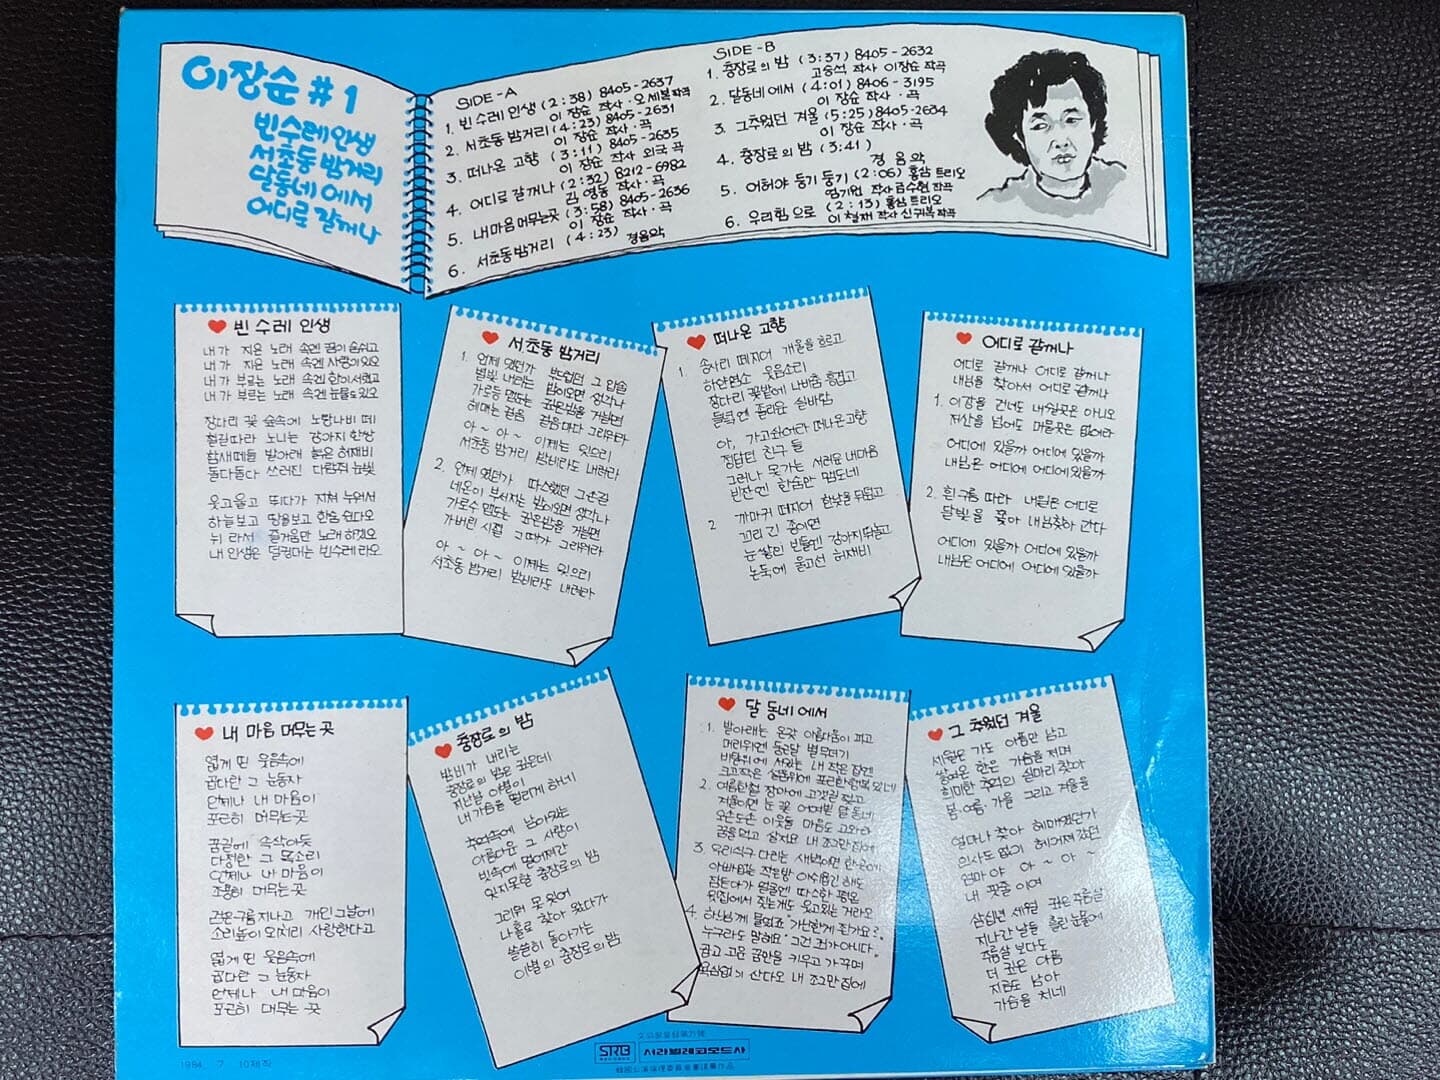 이장순 #1
빈수레 인생
서초동 밤거리
달동네 에서
어디로 갈꺼나
SIDE-A
1. 빈수레 인생 (2:38) 8405-2637
이 장순 작사·오세복 작곡
2. 서초동 밤거리 (4:23) 8405-2631
이 장순 작사·곡
3. 떠나온 고향 (3:11) 8405-2635
이 장순 작사 외국 곡
4. 어디로 갈꺼나 (2:32) 8212-6982
김 영동 작사·곡
5. 내마음 머무는곳 (3:58) 8405-2636
이 장순 작사·곡
6. 서초동 밤거리 (4:23) 경음악
SIDE-B
1. 충장로의 밤 (3:37) 8405-2632
고송석 작사 이장순 작곡
2. 달동네 에서 (4:01) 8406-3195
이 장순 작사·곡
3. 그추웠던 겨울 (5:25) 8405-2634
이 장순 작사·곡
4. 충장로의 밤 (3:41)
경 음 악
5. 어허야 둥기 둥기 (2:06) 홍삼 트리오
작사 김수현 작곡
6. 우리힘 으로 (2:13) 홍삼 트리오
이 철재 작사 신귀복 작곡
빈 수레 인생
내가 지은 노래 속엔 꿈이 숨쉬고
내가 지은 노래 속엔 사랑이 있오
내가 부르는 노래 속엔 한이 서렸고
내가 부르는 노래 속엔 눈물도 있오
장다리 꽃 숲속에 노랑나비 떼
철길따라 노니는 강아지 한쌍
참새떼들 발아래 붉은 허재비
돌다돌다 쓰러진 다람쥐 눈빛
웃고 울고 뛰다가 지쳐 누워서
하늘보고 땅을보고 한숨 쉰다오
뉘라서 즐거움만 노래 하겠오
내 인생은 덜컹대는 빈수레 라오
서초동 밤거리
1. 언제 였던가 보드랍던 그 입술
별빛 내리는 밤이오면 생각나
가로등 맴도는 깊은밤을 거닐면
헤매는 걸음 걸음마다 그리워라
아~ 아~ 이제는 잊으리
서초동 밤거리 밤비라도 내려라
2. 언제 였던가 따스했던 그 손길
네온이 부서지는 밤이오면 생각나
가로수 맴도는 깊은밤을 거닐면
가버린 시절 그때가 그리워라
아~ 아~ 이제는 잊으리
서초동 밤거리 밤비라도 내려라
떠나온 고향
1. 송사리 떼지어 개울을 흐르고
하얀염소 웃음소리
장다리 꽃밭에 나비춤 흥겹고
들녘엔 졸리운 실바람
아, 가고싶어라 떠나온고향
정답던 친구 들
그러나 못가는 서러운 내마음
빈잔엔 한숨만 맴도네
2 까마귀 떼지어 한낮을 뒤덮고
꼬리 긴 종이연
눈 쌓인 빈들엔 강아지 뛰놀고
논둑에 울고선 허재비
어디로 갈꺼나
어디로 갈꺼나 어디로 갈꺼나
내님을 찾아서 어디로 갈꺼나
1. 이강을 건너도 내쉴곳은 아니오
저산을 넘어도 머물곳은 없어라
어디에 있을까 어디에 있을까
내님은 어디에 어디에 있을까
2. 흰구름 따라 내님은 어디로
달빛을 쫓아 내님찾아 간다
어디에 있을까 어디에 있을까
내님은 어디에 어디에 있을까
내 마음 머무는 곳
엷게 띤 웃음속에
곱다란 그 눈동자
언제나 내 마음이
포근히 머무는 곳
꿈길에 속삭이듯
다정한 그 목소리
언제나 내 마음이
조용히 머무는 곳
구름 지나고 개인 그날에
소리높이 외치리 사랑한다고
엷게 띤 웃음속에
곱다란 그 눈동자
언제나 내 마음이
포근히 머무는 곳
충장로의 밤
밤비가 내리는
충장로의 밤은 깊은데
지난날 이별이
내 가슴을 떨리게 하네
추억속에 남아있는
아름다운 그 사람이
빗속에 멀어져간
잊지못할 충장로의 밤
그리워 못잊어
나홀로 찾아 왔다가
쓸쓸히 돌아가는
이별의 충장로의 밤
달 동네 에서
1. 발아래는 온갖 아름다움이 피고
머리위엔 둥근달 별무더기
비탈위에 서있는 내 작은 집엔
크고작은 살림위에 포근한 행복 있네
2. 여름한철 장마에 고갯길 질고
겨울이면 눈 꽃 어여쁜 달 동네
오손도손 이웃들 마음도 고와라
꿈을 먹고 살지요 내 조그만 집에
3. 우리식구 다리는 새벽이면 한곳에
아버님은 작은방 아쉬웁긴 해도
잠든아가 얼굴엔 따스한 평온
윗집에서 짖는개도 웃고있는 거라오
4. 하느님께 물었죠 "가난한게 죄인가요?"
누구라도 말해요 "그건 죄가 아니다."
곱고 고운 꿈만을 키우고 가꾸며
산다오 내 조그만 집에
그 추웠던 겨울
세월은 가도 아픔만 남고
쌓여온 한은 가슴을 저며
희미한 추억의 실마리 찾아
봄·여름·가을 그리고 겨울을
얼마나 찾아 헤매였던가
의사도 없이 헤쳐져 갔던
엄마 야 아 ~ 아
내 핏줄 이여
삼십년 세월 깊은 주름살
지나간 날들 흘린 눈물에
주름살 보다도
더 깊은 아픔
지금도 남아
가슴을 치네
1984. 7. 10 제작
SRB
RECORDS
서라벌레코드사